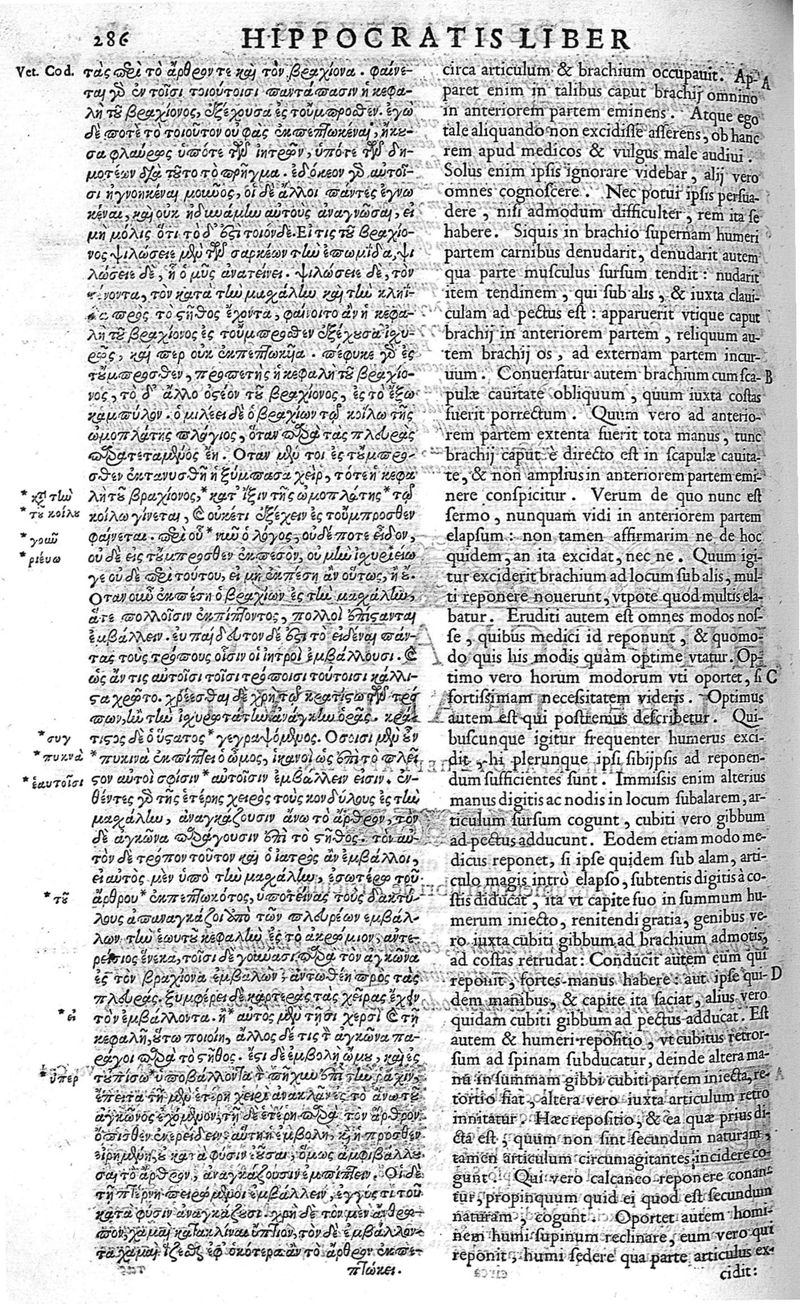 286 HIPPOCRATIS LIBER
Vet. Cod.
τὰς περὶ τὸ ἄρθρον τε καὶ τὸν βραχίονα. φαίνε-
ται γὰρ ἐν τοῖσι τοιούτοισι παντάπασιν ἡ κεφα-
λὴ τοῦ βραχίονος, ἐξέχουσα ἐς τοὔμπροσθεν. ἐγὼ
δέ ποτε τὸ τοιοῦτον οὐ φὰς ἐκπεπτωκέναι, ἤκου-
σα φλαύρως ὑπό τε τῶν ἰητρῶν, ὑπό τε τῶν δη-
μοτέων διὰ τοῦτο τὸ πρῆγμα. ἐδόκεον γὰρ αὐτοῖ-
σι ἠγνοηκέναι μοῦνος, οἱ δὲ ἄλλοι πάντες ἐγνω
κέναι, καὶ οὐκ ἠδυνάμην αὐτοὺς ἀναγνῶσαι, εἰ
μὴ μόλις ὅτι τὸ δ' ἐστὶ τοιόνδε. Εἴ τις τοῦ βραχίο-
νος ψιλώσειε μὲν τῶν σαρκέων τὴν ἐπωμίδα, ψι
λώσειε δὲ, ᾗ ὁ μῦς ἀνατείνει. ψιλώσειε δὲ, τὸν
τένοντα, τὸν κατὰ τὴν μασχάλην καὶ τὴν κληῖ-
δα πρὸς τὸ στῆθος ἔχοντα, φαίνοιτο ἂν ἡ κεφα-
λὴ τοῦ βραχίονος ἐς τοὔμπροσθεν ἐξέχουσα ἰσχυ-
ρῶς, καί περ οὐκ ἐκπεπτωκυῖα. πέφυκε γὰρ ἐς
τοὔμπροσθεν, προπετὴς ἡ κεφαλὴ τοῦ βραχίο-
νος, τὸ δ' ἄλλο ὀστέον τοῦ βραχίονος, ἐς τὸ ἔξω
καμπύλον. ὁμιλέει δὲ ὁ βραχίων τῷ κοίλῳ τῆς
ὠμοπλάτης πλάγιος, ὅταν παρὰ τὰς πλευρὰς
παρατεταμένος ἔῃ. Ὅταν μέν τοι ἐς τοὔμπρο-
σθεν ἐκτανυσθῇ ἡ ξύμπασα χεὶρ, τότε ἡ κεφα
* κατ τὴν
λὴ τοῦ βραχίονος,* κατ' ἴξιν τῆς ὠμοπλάτης * τῷ
* τοῦ κοίλου
κοίλῳ γίνεται, & οὐκέτι ἐξέχειν ἐς τοὔμπροσθεν
* γοῦν
φαίνεται. περὶ οὗ * νῦν ὁ λόγος, οὐδέποτε εἶδον,
* ριεύω
οὐδὲ εἰς τοὔμπροσθεν ἐκπεσὸν, οὐ μὴν ἰσχυριείω
γε οὐδὲ περὶ τούτου, εἰ μὴ ἐκπέσῃ ἂν οὕτως, ἢ οὔ.
Ὅταν οὖν ἐκπέσῃ ὁ βραχίων ἐς τὴν μασχάλην,
ἅτε πολλοῖσιν ἐκπίπτοντος, πολλοὶ ἐπίστανται
ἐμβάλλειν. εὐπαίδευτον δέ ἐστι τὸ εἰδέναι πάν-
τας τοὺς τρόπους οἷσιν οἱ ἰητροὶ ἐμβάλλουσι. &
ὡς ἄν τις αὐτοῖσι τοῖσι τρόποισι τούτοισι κάλλι-
στα χρῷτο. χρέεσθαι δὲ χρὴ τῷ κρατίστῳ τῶν τρό
πων, ἢν τὴν ἰσχυροτάτην ἀνάγκην ὁρᾷς. κρά-
* συγ
τιστος δὲ ὁ ὕστατος * γεγραψόμενος. Ὁκόσοισι μὲν οὖν
* πυκνὰ
* πυκινὰ ἐκπίπτει ὁ ὦμος, ἱκανοὶ ὡς ἐπὶ τὸ πλεῖ
* ἑαυτοῖσι
στον αὐτοὶ σφίσιν * αὐτοῖσιν ἐμβάλλειν εἰσίν. ἐν-
θέντες γὰρ τῆς ἑτέρης χειρὸς τοὺς κονδύλους ἐς τὴν
μασχάλην, ἀναγκάζουσιν ἄνω τὸ ἄρθρον, τὸν
δὲ ἀγκῶνα παράγουσιν ἐπὶ τὸ στῆθος. τὸν αὐ-
τὸν δὲ τρόπον τοῦτον καὶ ὁ ἰατρὸς ἂν ἐμβάλλοι,
εἰ αὐτὸς μὲν ὑπὸ τὴν μασχάλην, ἐσωτέρω τοῦ
* τοῦ
ἄρθρου * ἐκπεπτωκότος, ὑποτείνας τοὺς δακτύ-
λους ἀπαναγκάζοι ἀπὸ τῶν πλευρέων ἐμβάλ-
λων τὴν ἑωυτοῦ κεφαλὴν ἐς τὸ ἀκρώμιον, ἀντε-
ρείσιος ἕνεκα, τοῖσι δὲ γούνασι παρὰ τὸν ἀγκῶνα
ἐς τὸν βραχίονα ἐμβαλὼν, ἀντωθέῃ πρὸς τὰς
πλευράς. ξυμφέρει δὲ καρτερὰς τὰς χεῖρας ἔχειν
* εἰ
τὸν ἐμβάλλοντα. ἢ * αὐτὸς μὲν τῇσι χερσὶ & τῇ
κεφαλῇ, οὕτω ποιοίη, ἄλλος δέ τις τὸν ἀγκῶνα πα-
ράγοι παρὰ τὸ στῆθος. ἔστι δὲ ἐμβολὴ ὤμου, καὶ ἐς
* ὑπὲρ
τοὐπίσω * ὑποβάλλοντα τὸν πῆχυν ἐπὶ τὴν ῥάχιν,
ἔπειτα τῇ μὲν ἑτέρῃ χειρὶ ἀνακλᾷν ἐς τὸ ἄνω τοῦ
ἀγκῶνος ἐχόμενον, τῇ δὲ ἑτέρῃ παρὰ τὸν ἄρθρον
ὄπισθεν ἐνερείδειν. αὕτη ἡ ἐμβολὴ, καὶ ἡ πρόσθεν
εἰρημένη, οὐ κατὰ φύσιν ἐοῦσαι, ὅμως ἀμφιβάλλου
σαι τὸ ἄρθρον, ἀναγκάζουσιν ἐμπίπτειν. Οἱ δὲ
τῇ πτέρνῃ πειρώμενοι ἐμβάλλειν, ἐγγύς τι τοῦ
κατὰ φύσιν ἀναγκάζουσι. χρὴ δὲ τὸν μὲν ἄνθρω-
πον, χαμαὶ κατακλῖναι ὕπτιον, τὸν δὲ ἐμβάλλον-
τα χαμαὶ ἵζεσθαι ἐφ' ὁκότερα ἂν τὸ ἄρθρον ἐκπε-
πτώκει.
circa articulum & brachium occupauit. Ap-
A
paret enim in talibus caput brachij omnino
in anteriorem partem eminens. Atque ego
tale aliquando non excidisse asserens, ob hanc
rem apud medicos & vulgus male audiui.
Solus enim ipsis ignorare videbar, alij vero
omnes cognoscere. Nec potui ipsis persua-
dere, nisi admodum difficulter, rem ita se
habere. Siquis in brachio supernam humeri
partem carnibus denudarit, denudarit autem
qua parte musculus sursum tendit: nudarit
item tendinem, qui sub alis, & iuxta claui-
culam ad pectus est: apparuerit vtique caput
brachij in anteriorem partem, reliquum au-
tem brachij os, ad externam partem incur-
uum. Conuersatur autem brachium cum sca-
B
pulæ cauitate obliquum, quum iuxta costas
fuerit porrectum. Quum vero ad anterio-
rem partem extenta fuerit tota manus, tunc
brachij caput è directo est in scapulæ cauita-
te, & non amplius in anteriorem partem emi-
nere conspicitur. Verum de quo nunc est
sermo, nunquam vidi in anteriorem partem
elapsum: non tamen affirmarim ne de hoc
quidem, an ita excidat, nec ne. Quum igi-
tur exciderit brachium ad locum sub alis, mul-
ti reponere nouerunt, vtpote quod multis ela-
batur. Eruditi autem est omnes modos nos-
se, quibus medici id reponunt, & quomo-
do quis his modis quàm optime vtatur. Op-
timo vero horum modorum vti oportet, si
C
fortissimam necessitatem videris. Optimus
autem est qui postremus describetur. Qui-
buscunque igitur frequenter humerus exci-
dit, hi plerunque ipsi sibijpsis ad reponen-
dum sufficientes sunt. Immissis enim alterius
manus digitis ac nodis in locum subalarem, ar-
ticulum sursum cogunt, cubiti vero gibbum
ad pectus adducunt. Eodem etiam modo me-
dicus reponet, si ipse quidem sub alam, arti-
culo magis intrò elapso, subtentis digitis à co-
stis diducat, ita vt capite suo in summum hu-
merum iniecto, renitendi gratia, genibus ve-
ro iuxta cubiti gibbum ad brachium admotis,
ad costas retrudat: Conducit autem eum qui
D
reponit, fortes manus habere: aut ipse qui-
dem manibus, & capite ita faciat, alius vero
quidam cubiti gibbum ad pectus adducat. Est
autem & humeri repositio, vt cubitus retror-
sum ad spinam subducatur, deinde altera ma-
nu in summam gibbi cubiti partem iniecta, re-
tortio fiat, altera vero iuxta articulum retro
innitatur. Hæc repositio, & ea quæ prius di-
cta est, quum non sint secundum naturam,
tamen articulum circumagitantes, incidere co-
gunt. Qui vero calcaneo reponere conan-
tur, propinquum quid ei quod est secundum
naturam, cogunt. Oportet autem homi-
nem humi supinum reclinare, eum vero qui
reponit, humi sedere qua parte articulus ex-
cidit: